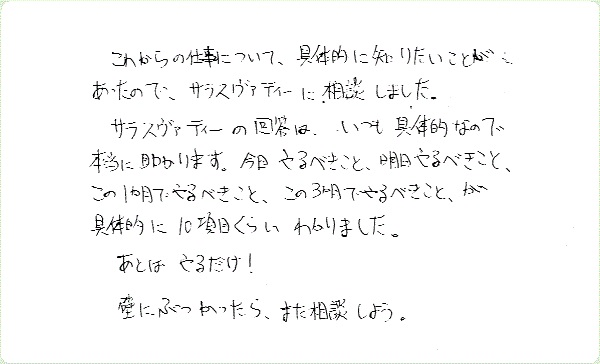 これからの仕事について、具体的に知りたいことが
あったので、サラスヴァティーに相談しました。
サラスヴァティーの回答は、いつも具体的なので
本当に助かります。今日やるべきこと、明日やるべきこと、
この1か月でやるべきこと、この3か月でやるべきこと、が
具体的に10項目くらいわかりました。
あとはやるだけ！
壁にぶつかったら、また相談しよう。